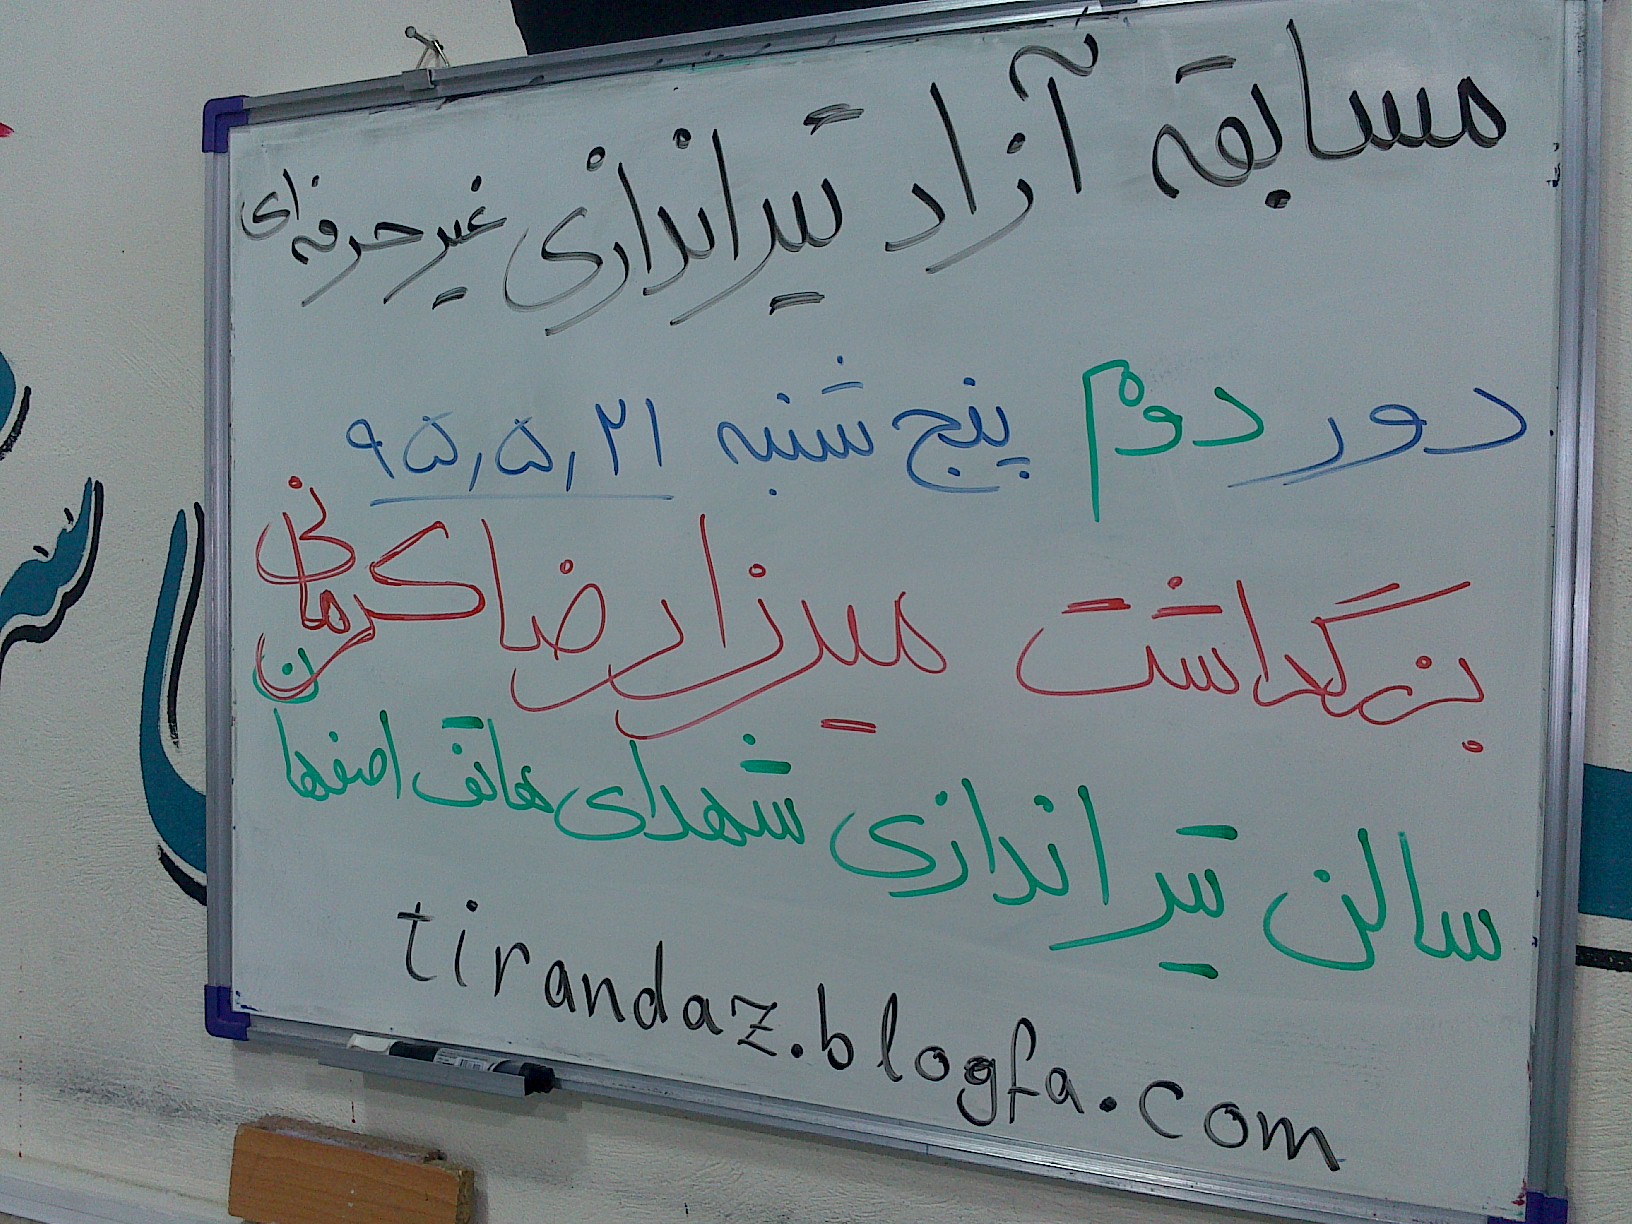 مسابقه آزاد تیراندازی غیرحرفه‌ای
دور دوم پنج شنبه ۹۵٫۵٫۲۱
بزرگداشت میرزا رضا کرمانی
سالن تیراندازی شهدای هاتف اصفهان
tirandaz.blogfa.com